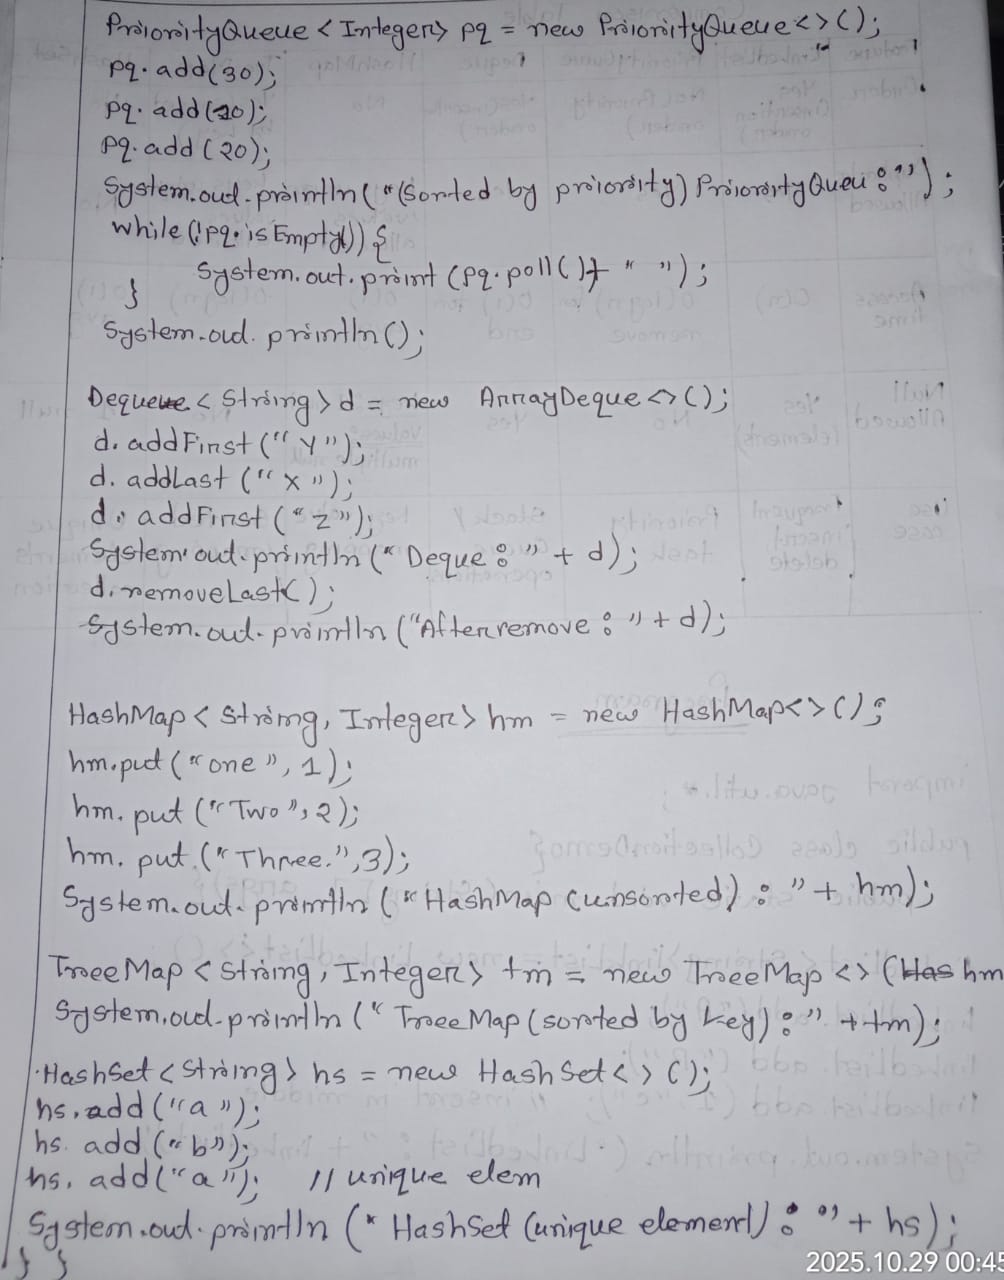 PriorityQueue<Integer> pq = new PriorityQueue<>();
pq.add(30);
pq.add(10);
pq.add(20);
System.out.println("(Sorted by priority) PriorityQueu:");
while(!pq.isEmpty()) {
System.out.print(pq.poll() + " ");
}
System.out.println();
Deque<String> d = new ArrayDeque<>();
d.addFirst("Y");
d.addLast("X");
d.addFirst("Z");
System.out.println("Deque:" + d);
d.removeLast();
System.out.println("After remove:" + d);
HashMap<String, Integer> hm = new HashMap<>();
hm.put("one", 1);
hm.put("Two", 2);
hm.put("Three.", 3);
System.out.println("HashMap (unsorted):" + hm);
TreeMap<String, Integer> tm = new TreeMap<>(hm
System.out.println("TreeMap (sorted by key):" + tm);
HashSet<String> hs = new HashSet<>();
hs.add("a");
hs.add("b");
hs.add("a"); // unique elem
System.out.println("HashSet (unique element):" + hs);
} }
2025.10.29 00:45